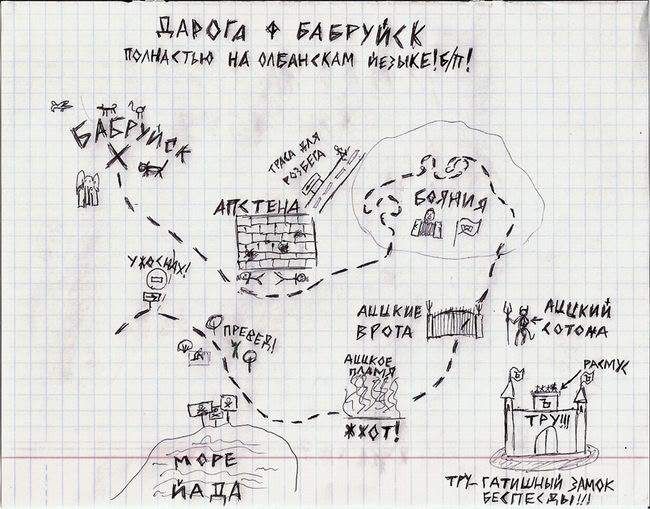 ДАРОГА Ф БАБРУЙСК
ПОЛНАСТЬЮ НА ОЛБАНСКАМ ЙЕЗЫКЕ! Б/П!
БАБРУЙСК
ТРАСА ДЛЯ
РОЗБЕГА
АПСТЕНА
БОЯНИЯ
УЖОСНАХ!
ПРЕВЕД!
АЦЦКИЕ
ВРОТА
АЦЦКИЙ
СОТОНА
АЦЦКОЕ
ПЛАМЯ
ЖЖОТ!
РАСМУС
ТРУ!!!
МОРЕ
ЙАДА
ТРУ-ГАТИШНЫЙ ЗАМОК
БЕСПЕСДЫ!!!